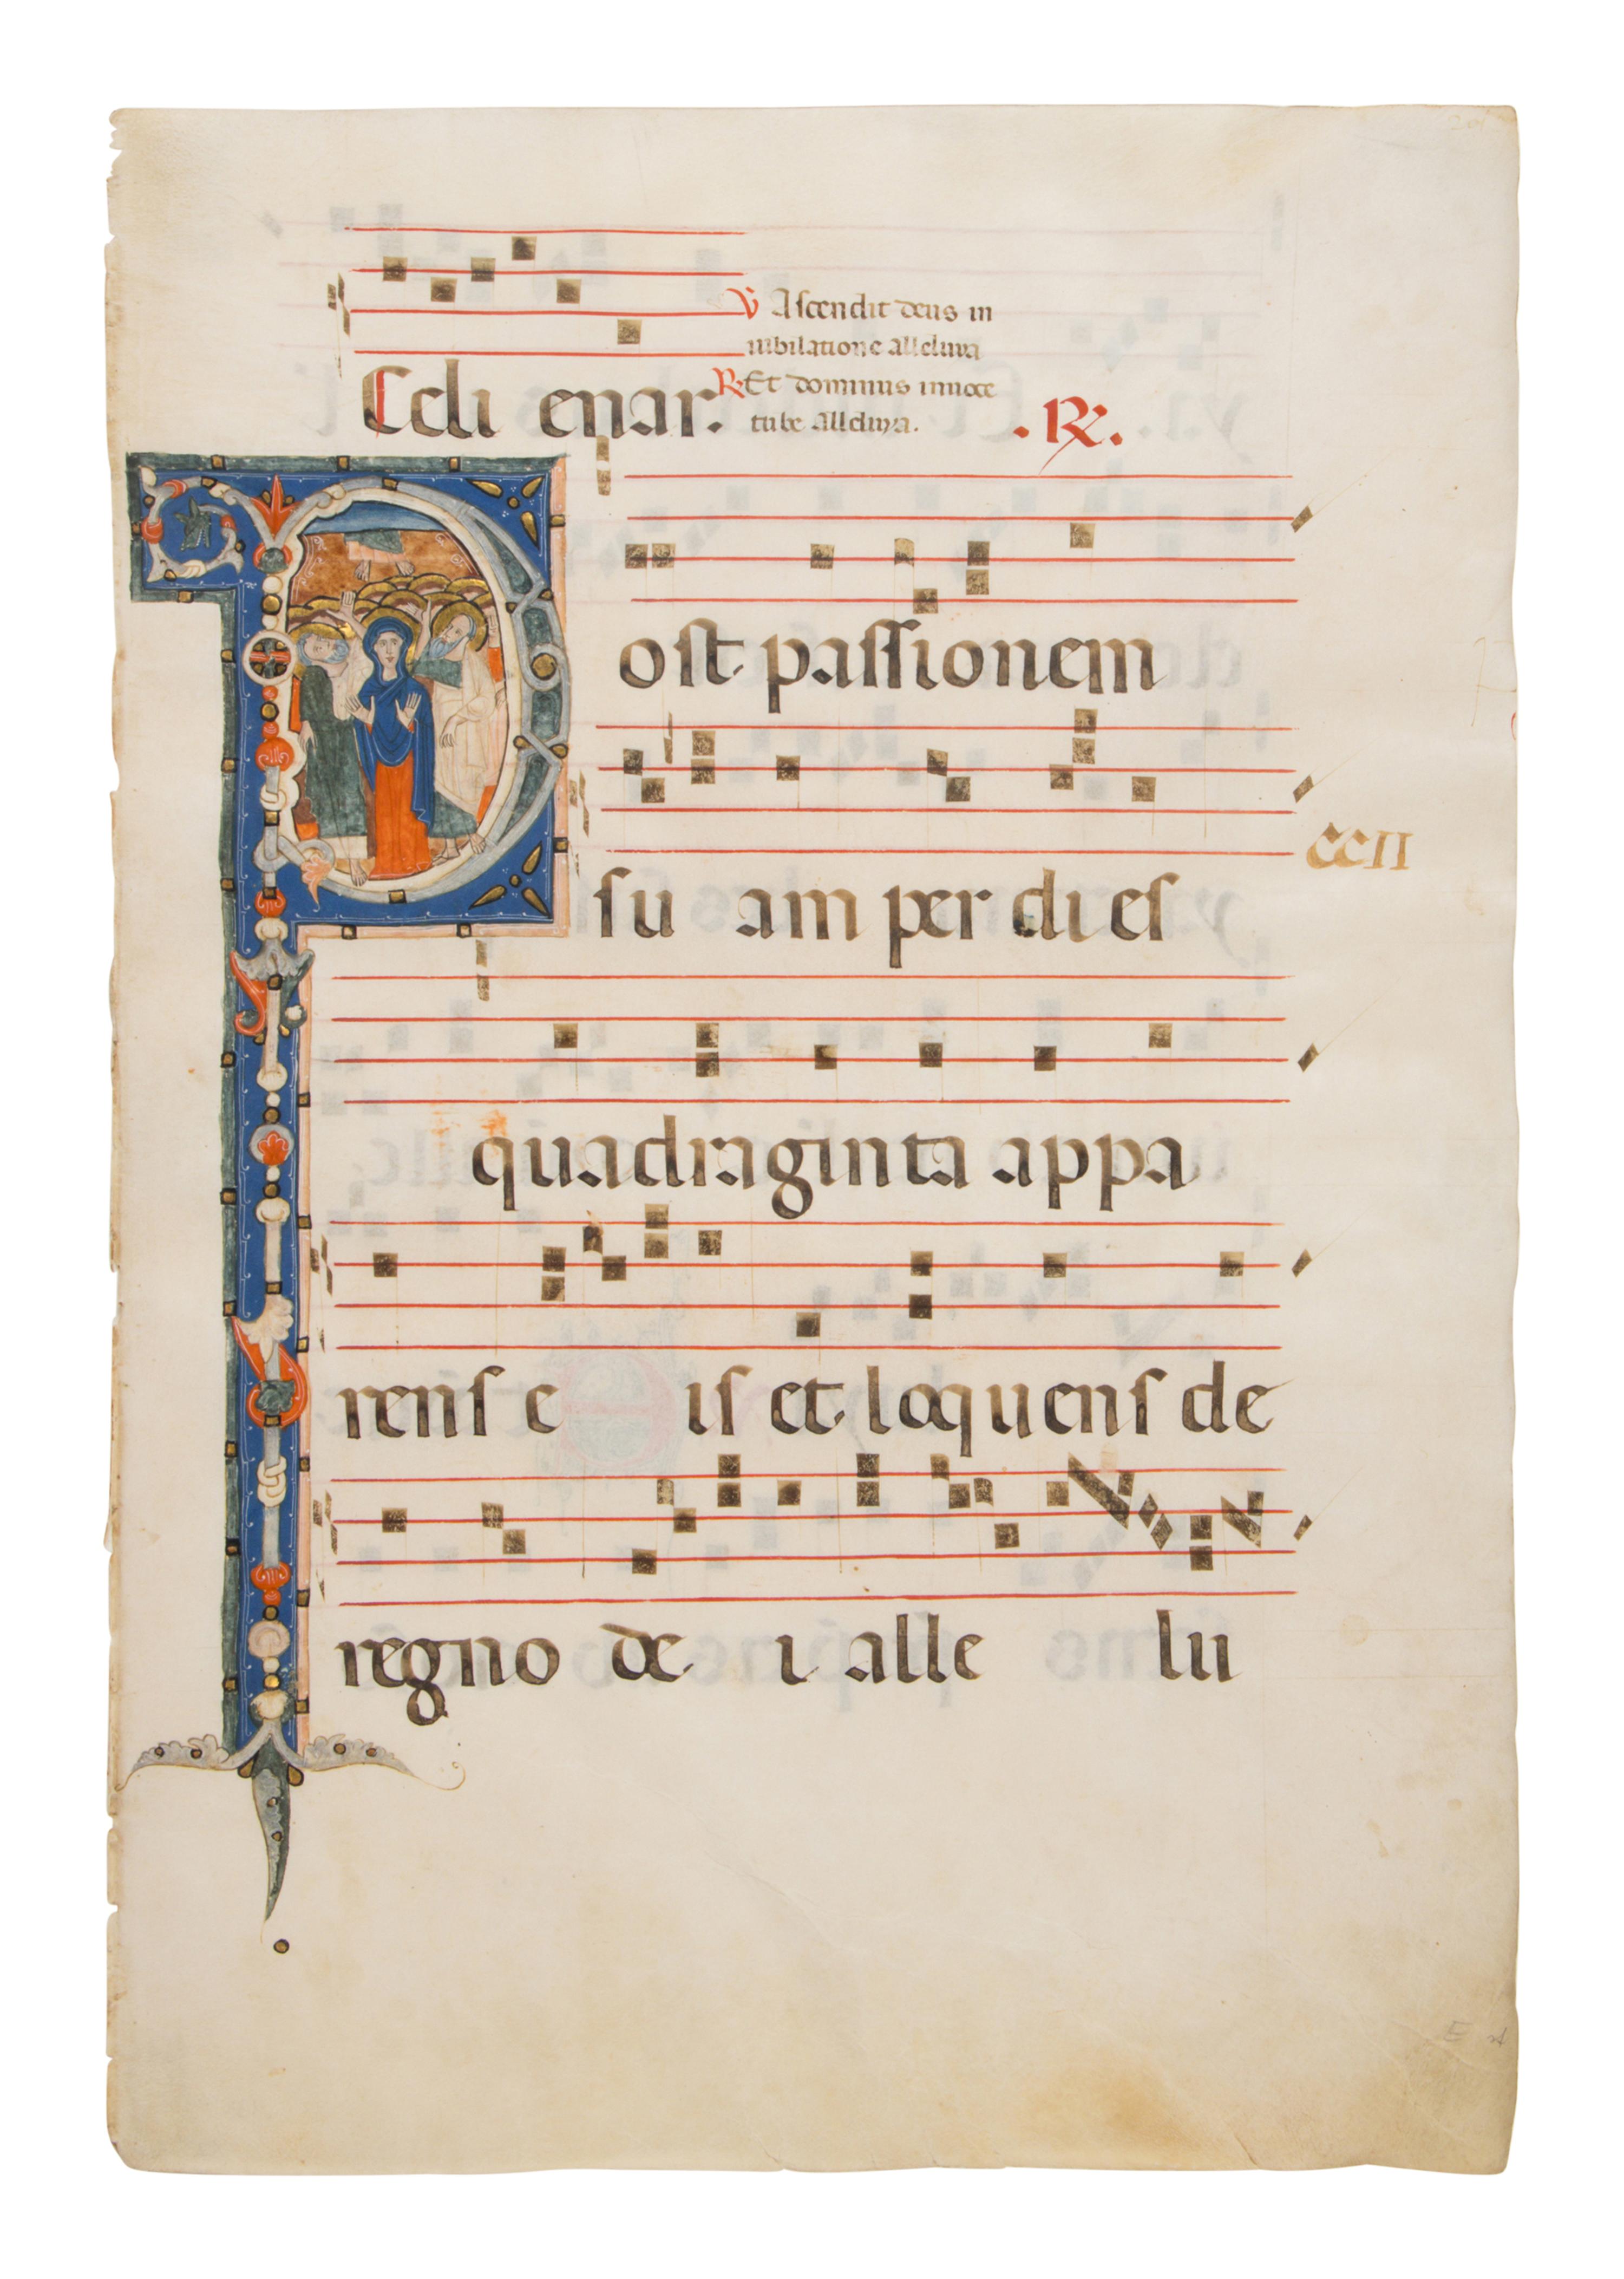 Celi enar.
V Ascendit deus in
iubilatione alleluya
R Et dominus in uoce
tube alleluya.
. R .
Post passionem
CCII
su am per dies
quadraginta appa
rens e is et loquens de
regno de i alle lu